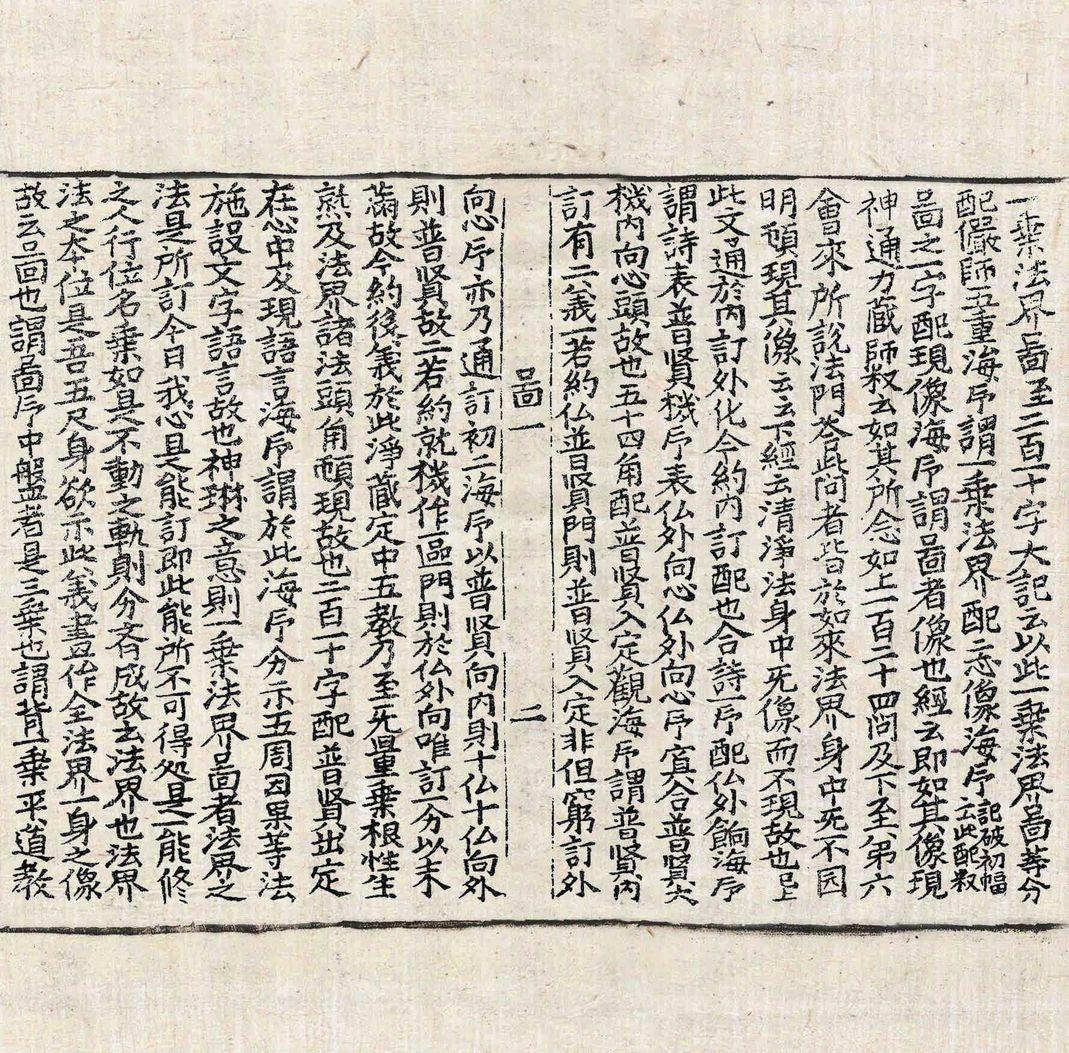 一乗法界啚至二百一十字大記云以此一乗法界啚等分
配儼師五重海序謂一乗法界配忘像海序記破初幅云此配叙
啚之一字配現像海序謂啚者像也經云即如其像現
神通力蔵師叙云如其所念如上一百二十四問及下至第六
會來所說法門答此問者皆於如來法界身中旡不因
明頓現其像云云下經云清淨法身中旡像而不現故也已上
此文通於内訂外化今約内訂配也合詩一序配仏外餉海序
謂詩表普賢機序表仏外向心仏外向心序賔合普賢大
機内向心頭故也五十四角配普賢入定觀海序謂普賢内
訂有二義一若約仏普賢門則普賢入定非但窮訂外
啚一 二
向心序亦乃通訂初二海序以普賢向内則十仏十仏向外
則普賢故二若約就機作一區門則於仏外向唯訂一分以未
滿故今約後義於此淨蔵定中五教乃至旡量乗根性生
熟及法界諸法頭角頓現故也二百一十字配普賢出定
在心中及現語言海序謂於此海序分示五周因果等法
施設文字語言故也神琳之意則一乗法界啚者法界之
法是所訂今日我心是能訂即此能所不可得処是一能修
之人行位名乗如是不動之軌則分斉成故云法界也法界
法之本位是吾五尺身欲示此義畫作全法界一身之像
故云啚也謂啚序中盤者是三乗也謂背一乗平道教